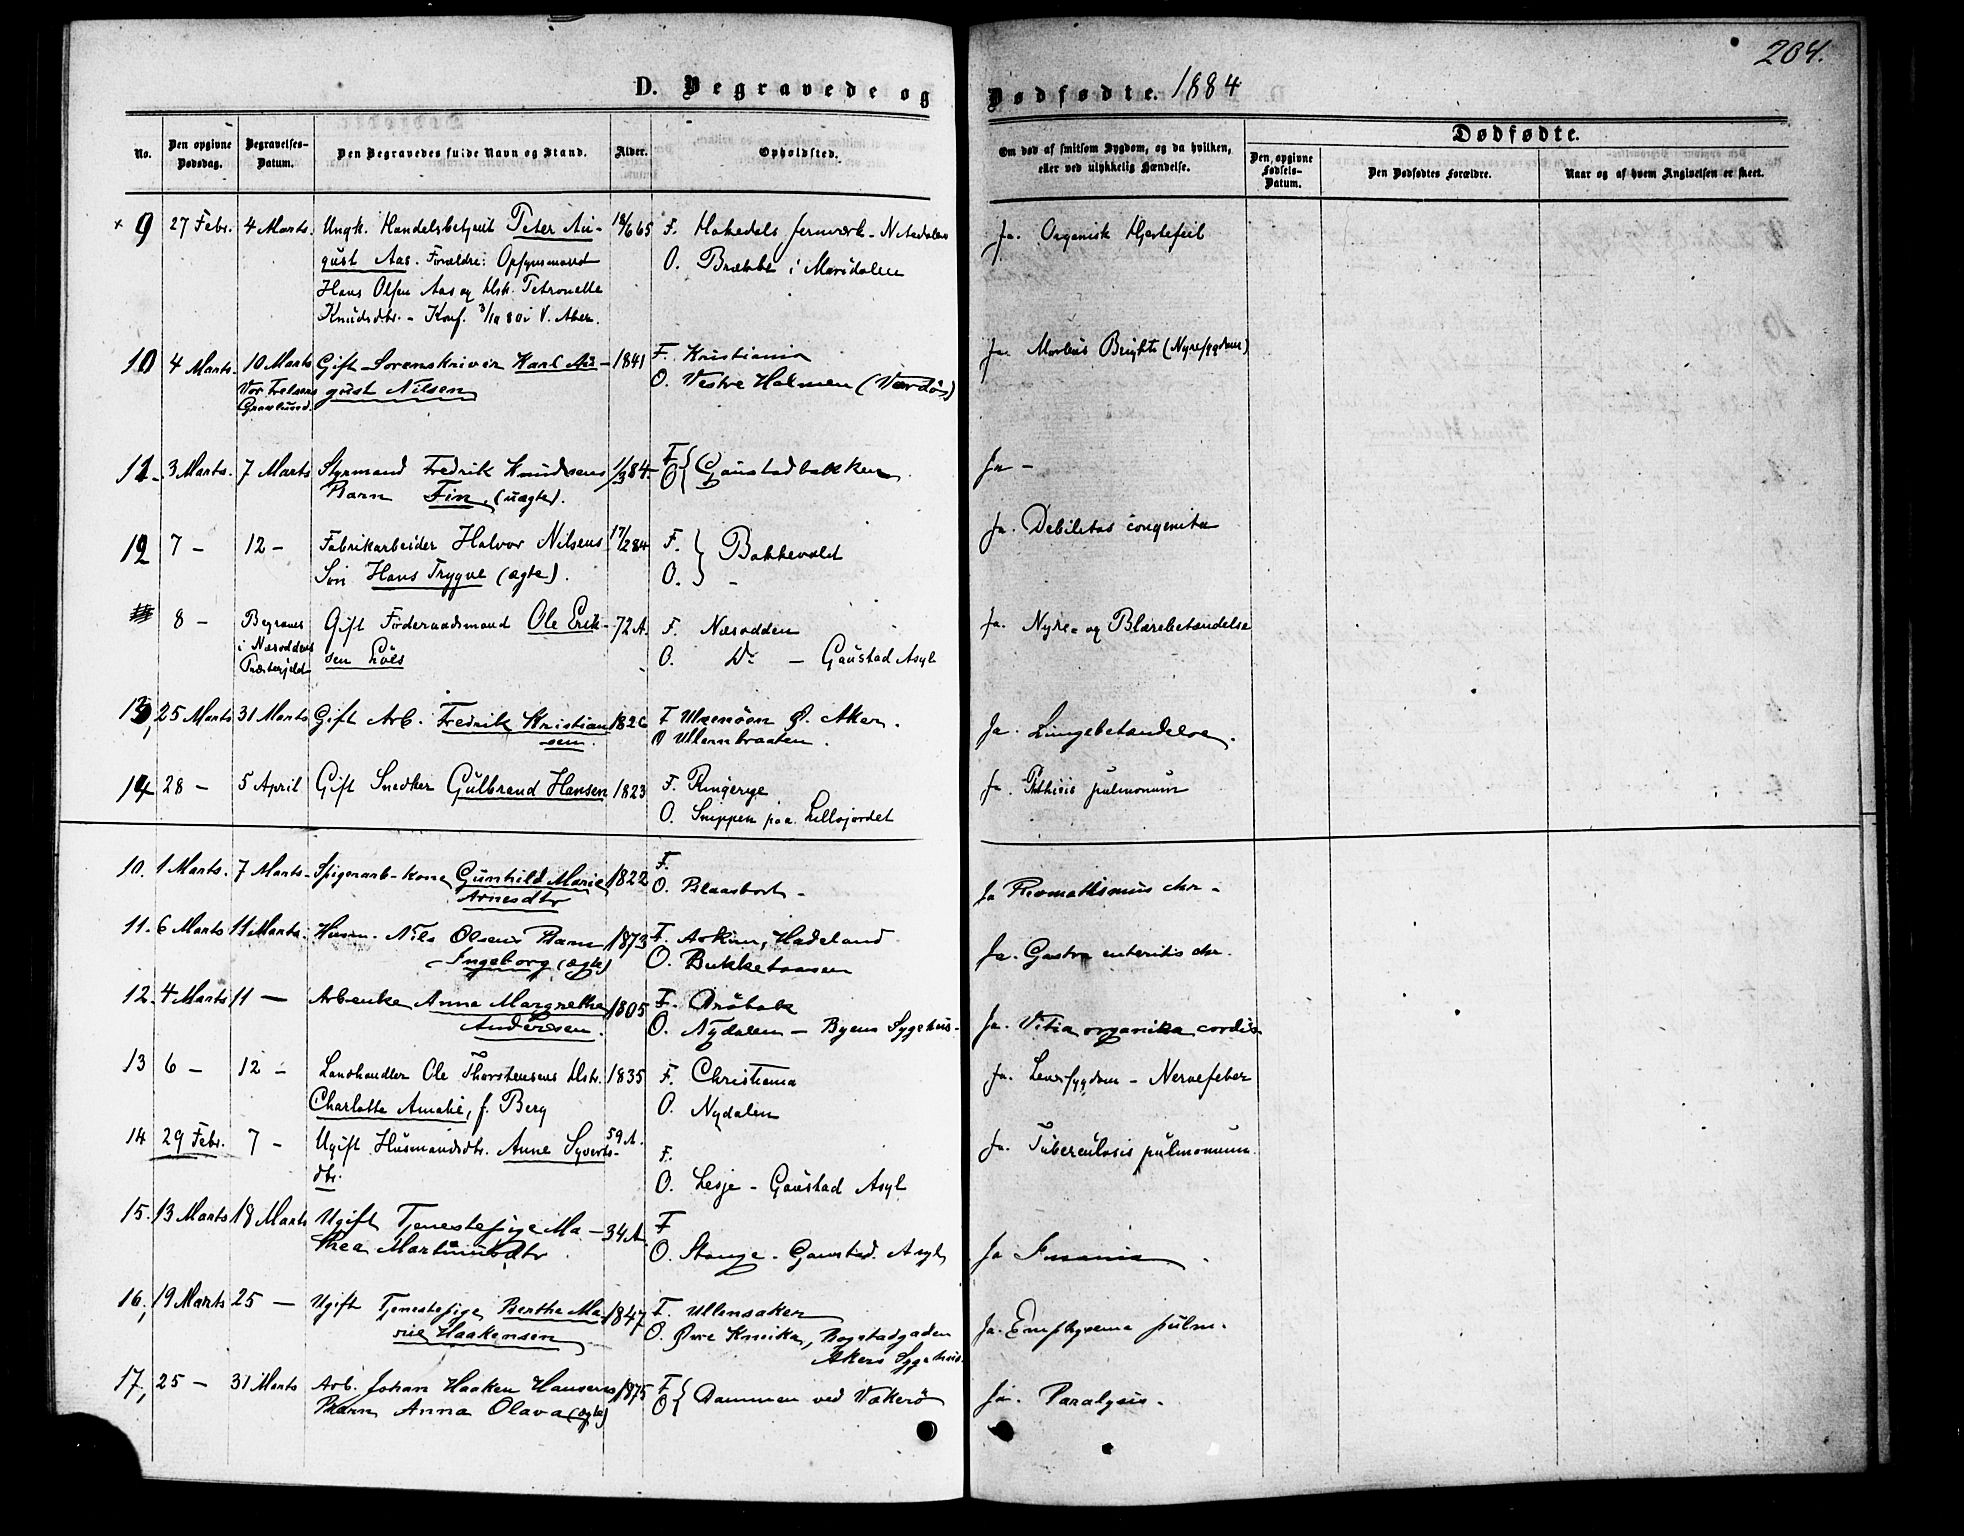 204.
D. Begravede og Dødfødte. 1884
No.
Den opgivne Dødsdag.
Begravelses-Datum.
Den Begravedes fulde Navn og Stand.
Alder.
Opholdsted.
Om død af smitsom Sygdom, og da hvilken, eller ved ulykkelig Hændelse.
Dødfødte.
Den opgivne Fødsels-Datum.
Den Dødfødtes Forældre.
Naar og af hvem Angivelsen er skeet.
× 9 27 Febr. 4 Marts. Ungk. Handelsbetjent Peter Au- 18/6 65 F. Hakedals Jernværk - Nitedalen Ja. Organisk Hjertefeil
gust Aas. Forældre: Opsynsmand O. Brække i Maridalen
Hans Olsen Aas og Hst. Petronelle
Knudsdtr. - Konf. 3/10 80 i V. Aker.
10 4 Marts. 10 Marts Gift Sorenskriver Karl Au- 1841 F. Kristiania Ja. Morbus Brighti (Nyresygdom)
Vor Frelsers gust Nilsen O. Vestre Holmen (Vardö)
Gravlund.
11. 3 Marts. 7 Marts Styrmand Fredrik Knudsens 1/3 84. F. O. Gaustadbakken Ja -
Barn Fin. (uægte).
12 7 - 12 - Fabrikarbeider Halvor Nilsens 17/2 84 F. Bakkevold Ja. Debilitas congenita
Søn Hans Trygve (ægte). O. -
8 - Begraves Gift Föderaadsmand Ole Erik- 72 A. F. Næsodden Ja. Nyre- og Blærebetændelse
i Næsoddens sen O. Do - Gaustad Asyl
Præstegjeld
13, 25 Marts 31 Marts Gift Arb. Fredrik Kristian 1826 F Ø. Aker. Ja. Lungebetændelse.
sen. O Ullernbraaten.
14 28 - 5 April Gift Snedker Gulbrand Hansen 1823 F. Ringerige Ja. Phthisis pulmonum
O. Snippen paa Lillojordet
10. 1 Marts. 7 Marts. Spigerarb-kone Gunhild Marie 1822 F.
Arnesdtr O. Blaasbort - Ja Reomatismus chr -
11. 6 Marts 11 Marts. Husm. Nils Olsens Barn 1873 F. Hadeland Ja. Gastro enteritis chr.
Ingeborg (ægte) O.
12. 4 Marts 11 - Arbenke Anna Margrethe 1805 F. Dröbak
Andersen. O. Nydalen - Byens Sygehus - Ja. Vitia organika cordis
13 6 - 12 - Landhandler Ole Thorstensens Hstr. 1835 F. Christiania Ja. Leversygdom - Nervefeber
Charlotte Amalie, f. Berg O. Nydalen
14 29 Febr. 7 - Ugift Husmandsdtr. Anne Syverts- 59 A. F. Ja. Tuberculosis pulmonum
dtr. O. Lesje - Gaustad Asyl
15. 13 Marts 18 Marts Ugift Tjenestepige Ma- 34 A. F
thea Martinusdtr. O. Stange - Gaustad. Asyl Ja Insania
16, 19 Marts 25 - Ugift Tjenestepige Berthe Ma- 1847 F. Ullensaker Ja. Emphysema pulm.
rie Haakensen O. Øvre Kneika, Bogstadgaden
Akers Sygehus.
17, 25 - 31 Marts Arb. Johan Haaken Hansens 1875 F O Dammen ved Vækerö Ja. Paralysis.
Barn Anna Olava (ægte)